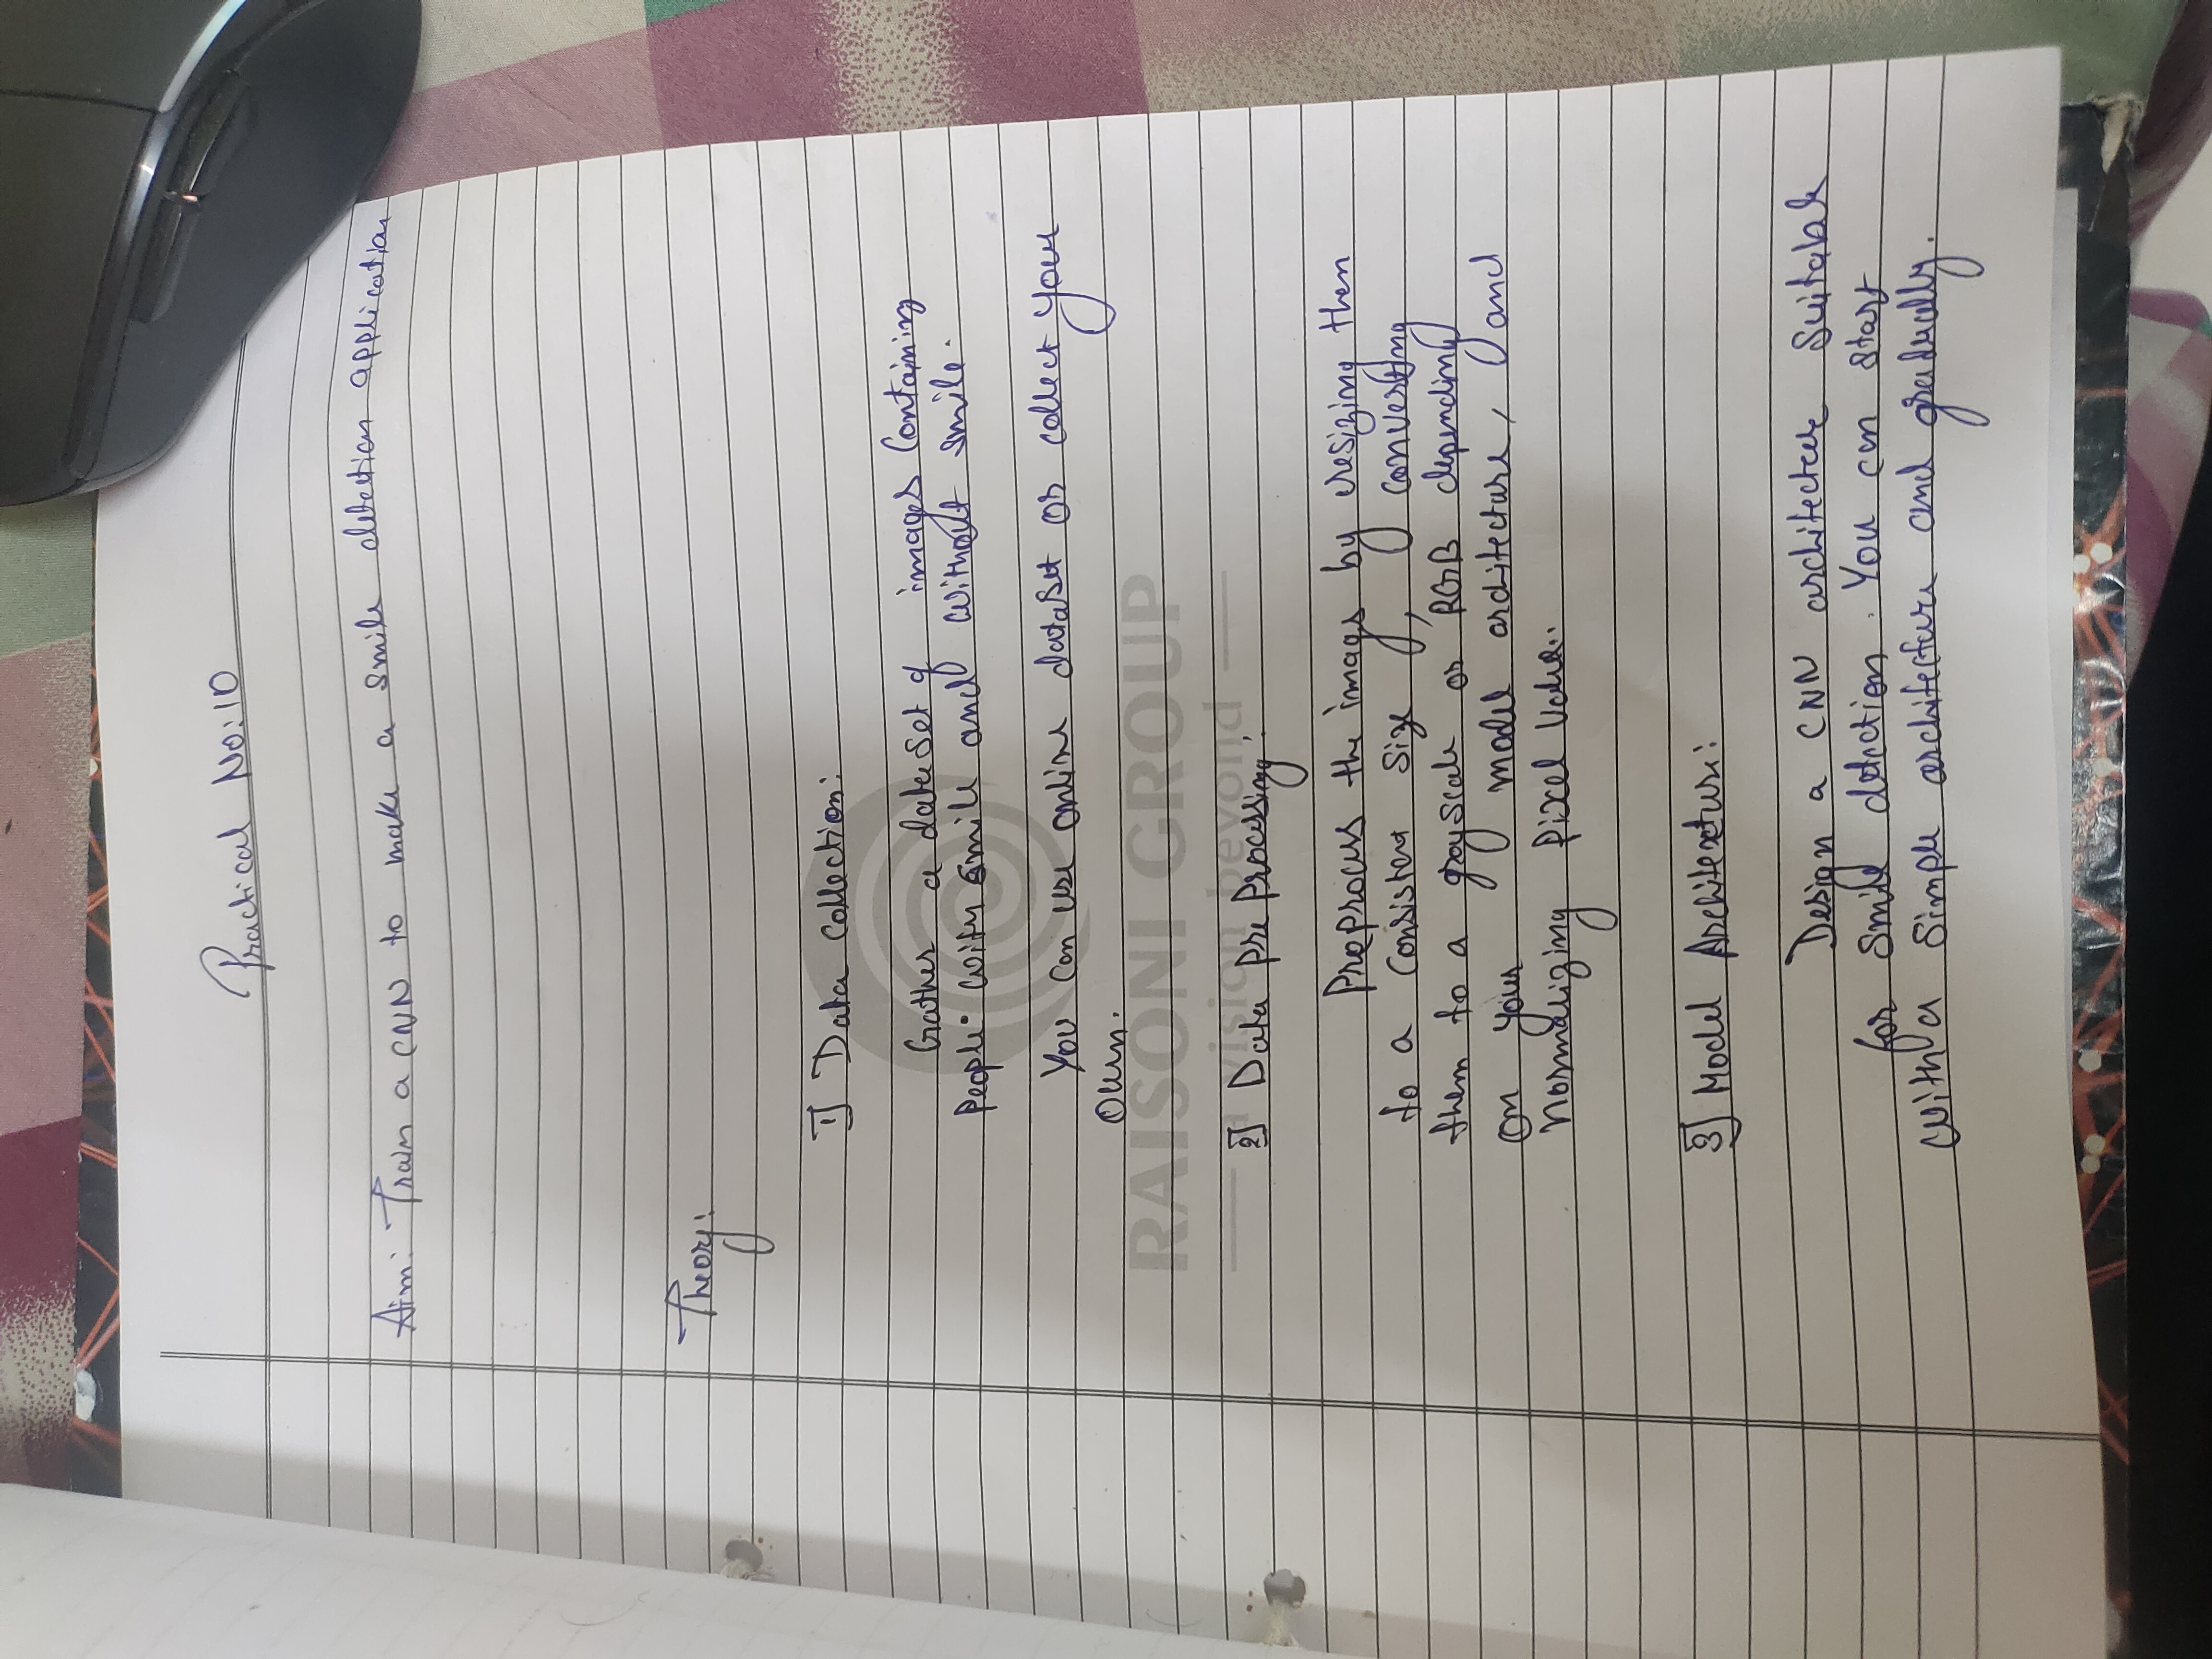 Practical No:10
Aim: Train a CNN to make a smile detection application
Theory:
1] Data Collection:
Gather a dataset of images Containing
People with smile and without smile.
You can use online dataset or collect your
own.
RAISONI GROUP
a vision beyond
2] Data Pre Processing:
Preprocess the images by resizing then
to a consistent size, converting
them to a grayscale or RGB depending
on your model architecture, and
Normalizing Pixel Value..
3] Model Architexture:
Design a CNN architecture Suitable
for Smile detection. You can start
with a Simple architecture and gradually.